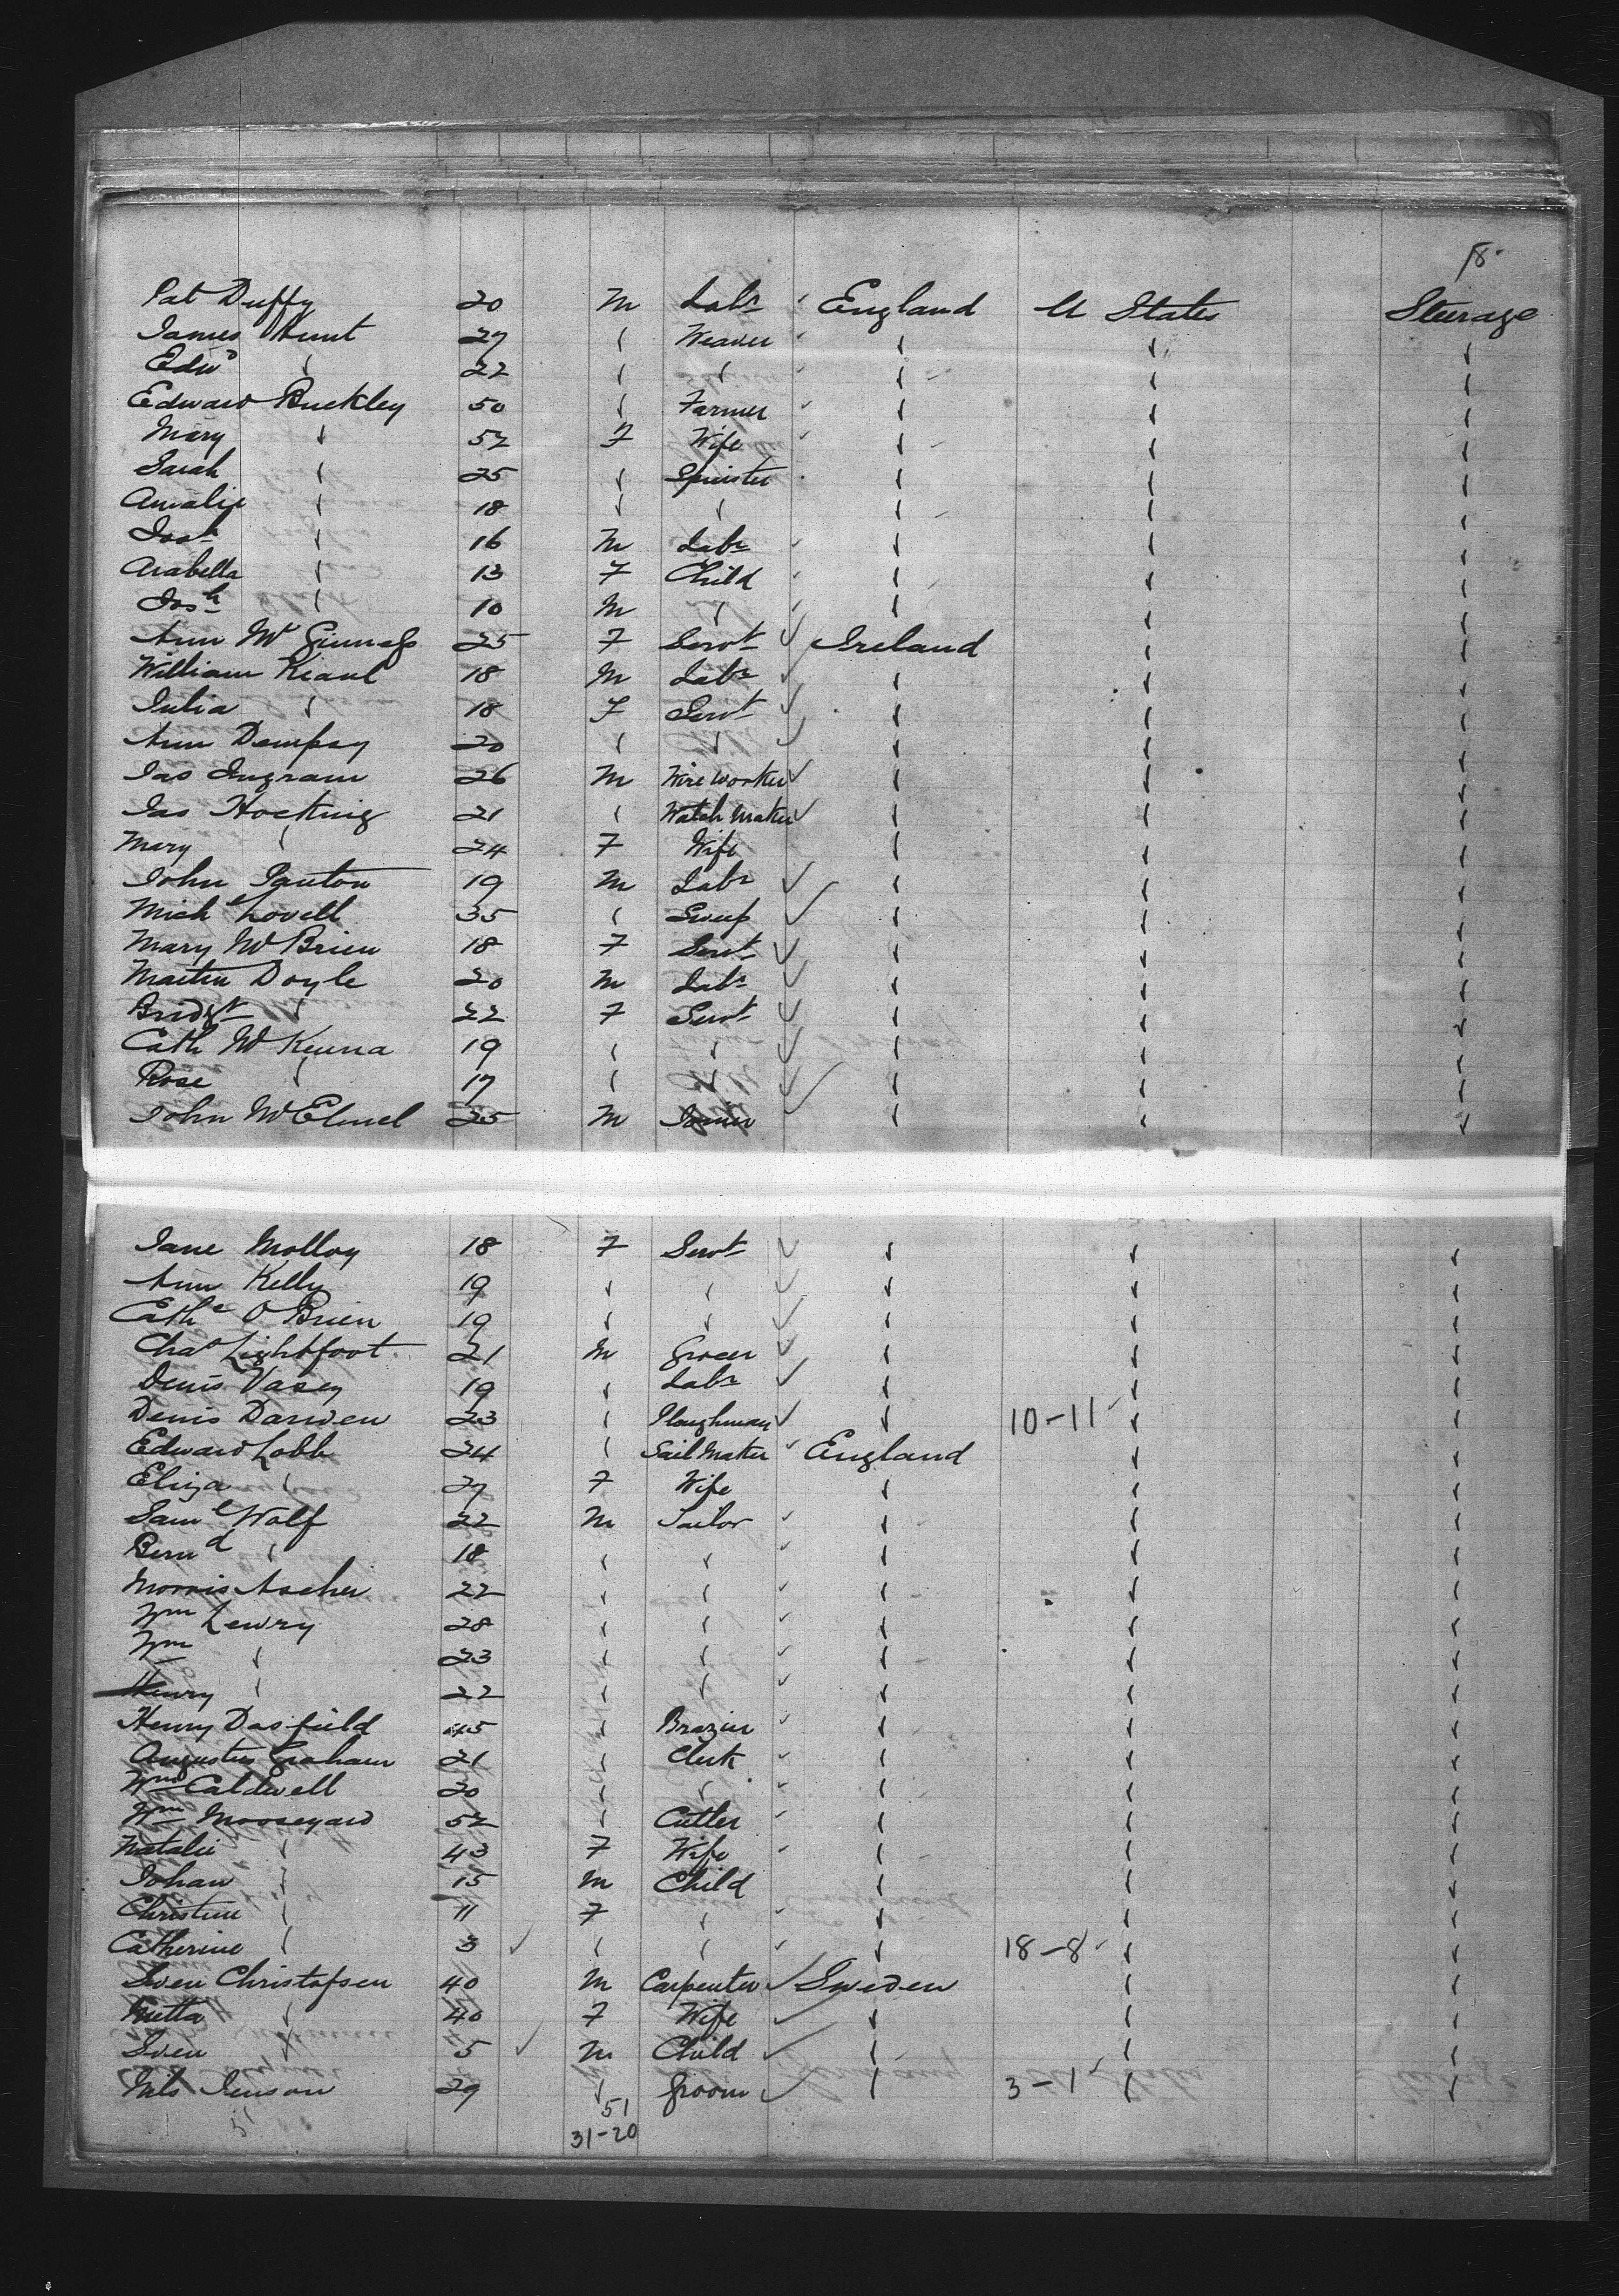 18
Pat Duffy 20 M Labr England U States Steerage
James Hunt 27 " Weaver " " "
Edwd " 22 " " " " "
Edward Buckley 50 " Farmer " " "
Mary " 52 F Wife " " "
Sarah " 25 " Spinster " " "
Amalie " 18 " " " " "
Josh " 16 M Labr " " "
Arabella " 13 F Child " " "
Josh " 10 M " " " "
Ann Mc Ginness 25 F Servt Ireland " "
William Keaul 18 M Labr " " "
Julia " 18 F Servt " " "
Ann Dempsey 20 " " " " "
Jas Ingram 26 M Wire Worker " " "
Jas Hocking 21 " Watch Maker " " "
Mary " 24 F Wife " " "
John Panton 19 M Labr " " "
Michl Lovell 35 " Sweep " " "
Mary Mc Brien 18 F Servt " " "
Martin Doyle 20 M Labr " " "
Bridgt " 22 F Servt " " "
Cath Mc Kenna 19 " " " " "
Rose " 17 " " " " "
John Mc Elmel 25 M Joiner " " "
Jane Molloy 18 F Servt " " "
Ann Kelly 19 " " " " "
Cathe O Brien 19 " " " " "
Chas Lightfoot 21 M Grocer " " "
Denis Vasey 19 " Labr " " "
Denis Darwen 23 " Ploughman " 10-11 " "
Edward Lobb 24 " Sail Maker England " "
Eliza " 27 F Wife " " "
Saml Wolf 22 M Tailor " " "
Bernd " 18 " " " " "
Morris Ascher 22 " " " " "
Wm Lewry 28 " " " " "
Wm " 23 " " " " "
Henry " 22 " " " " "
Henry Dasfield 45 " Brazier " " "
Augustus Graham 21 " Clerk " " "
Wm Caldwell 20 " " " " "
Wm Mooseyard 52 " Cutler " " "
Natalie " 43 F Wife " " "
Johan " 15 M Child " " "
Christine " 11 F " " " "
Catherine " 3 " " " 18-8 " "
Swen Christofsen 40 M Carpenter Sweden " "
Netta " 40 F Wife " " "
Swen " 5 M Child " " "
Nils Jenson 29 " Groom " 3-1 " "
51 51
31-20